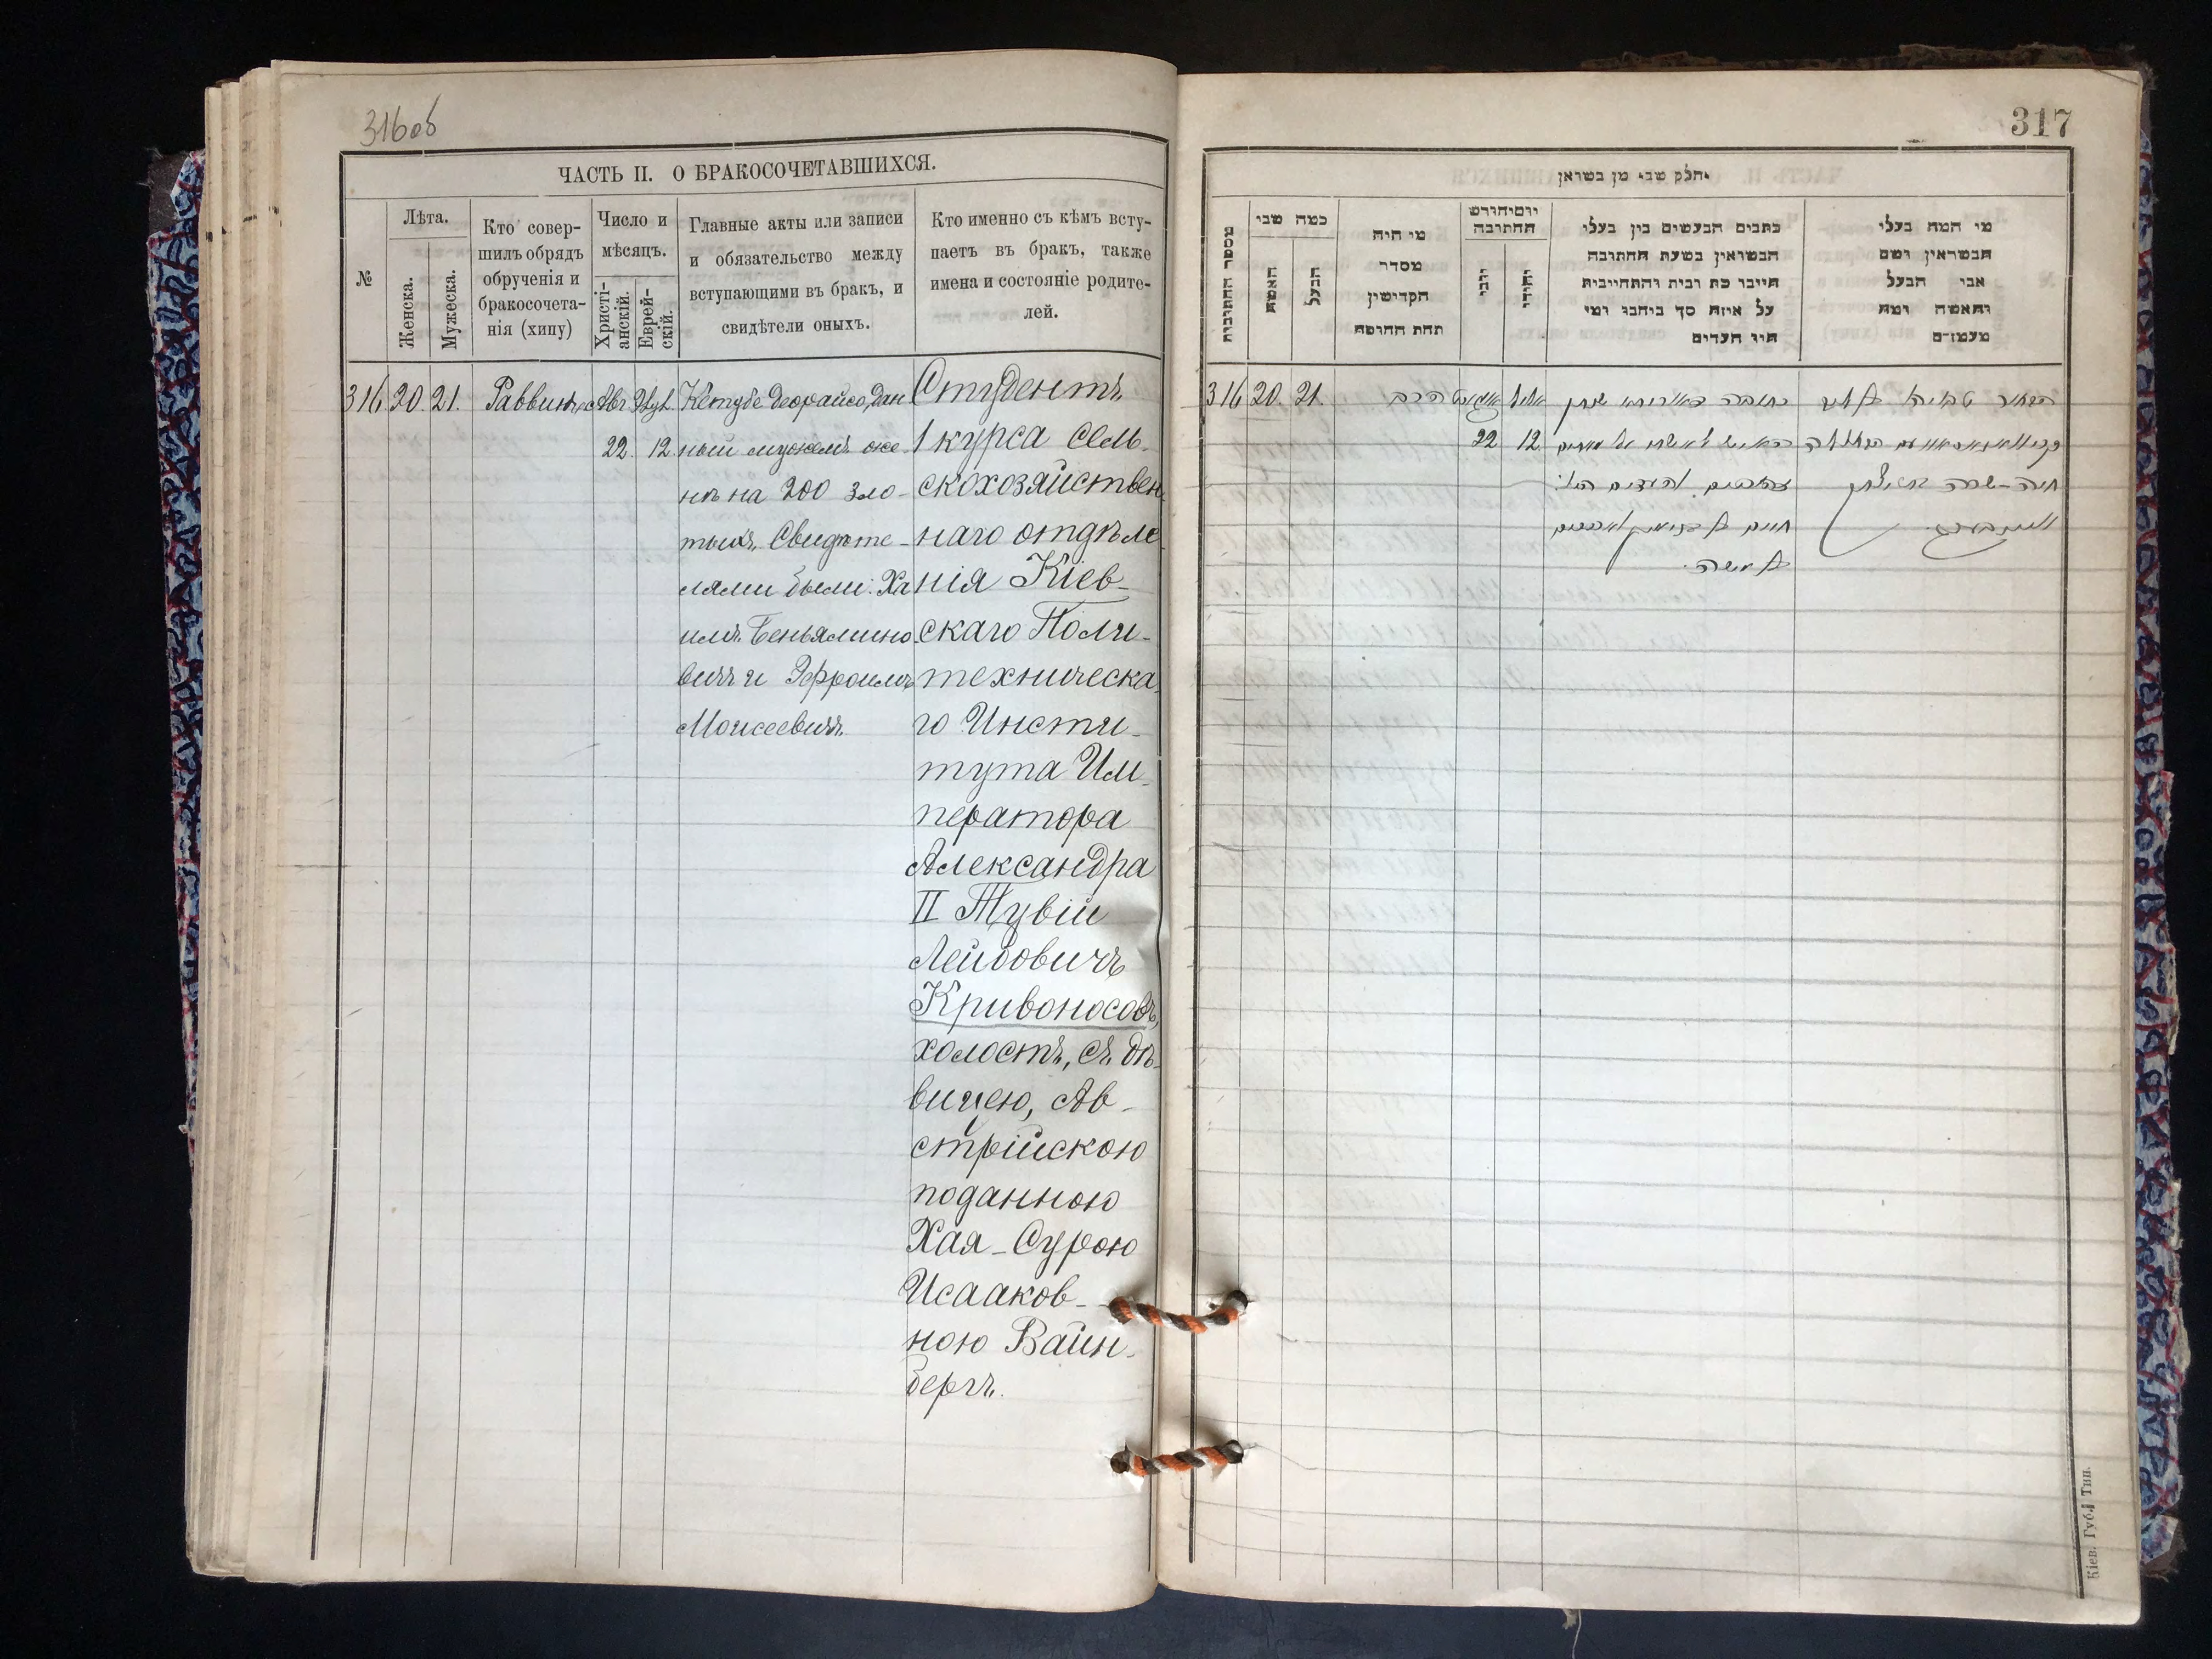 316об
ЧАСТЬ II. О БРАКОСОЧЕТАВШИХСЯ.
№
Лѣта.
Женска.
Мужеска.
Кто совер-
шилъ обрядъ
обрученія и
бракосочета-
нія (хипу)
Число и
мѣсяцъ.
Христі-
анскій.
Еврей-
скій.
Главные акты или записи
и обязательство между
вступающими въ бракъ, и
свидѣтели оныхъ.
Кто именно съ кѣмъ всту-
паетъ въ бракъ, также
имена и состояніе родите-
лей.
316 20. 21. Раввинъ Авг. Элул.
22. 12.
Кетубе деорайсо, дан
ный мужемъ же-
нѣ на 200 зло-
тыхъ. Свидѣте-
лями были: Ха
имъ Беньямино-
вичъ и Эфроимъ
Моисеевичъ.
Студентъ
1 курса сель-
скохозяйствен-
наго отдѣле-
нія Кіев-
скаго Поли-
техническа-
го Инсти-
тута Им-
ператора
Александра
II Тувій
Лейбовичъ
Кривоносовъ,
холостъ, съ дѣ-
вицею, Ав-
стрійскою
поданною
Хая-Сурою
Исааков-
ною Вайн-
бергъ.
317
חלק שני מן נשואן
מספר החתונות
כמה שני
האשה
הבעל
מי היה
מסדר
הקדישין
תחת החופה
יום וחורש
החתונה
נוצרי
יהודי
כתבים הנעשים בין בעלי
הנשואין בשעת החתונה
חיוב כת רבית והתחייבות
על איזה סך ניתנו ומי
היו העדים
מי המה בעלי
הנשואין ושם
אבי הבעל
והאשה ומה
מעמדם
316 20. 21. הרב אוגוסט אלול
22 12
כתובה דאורייתא שנתן
חיים
משה.
הבחור טביה
חיה-שרה
וויינבערג
Кіев. Губ. Тип.